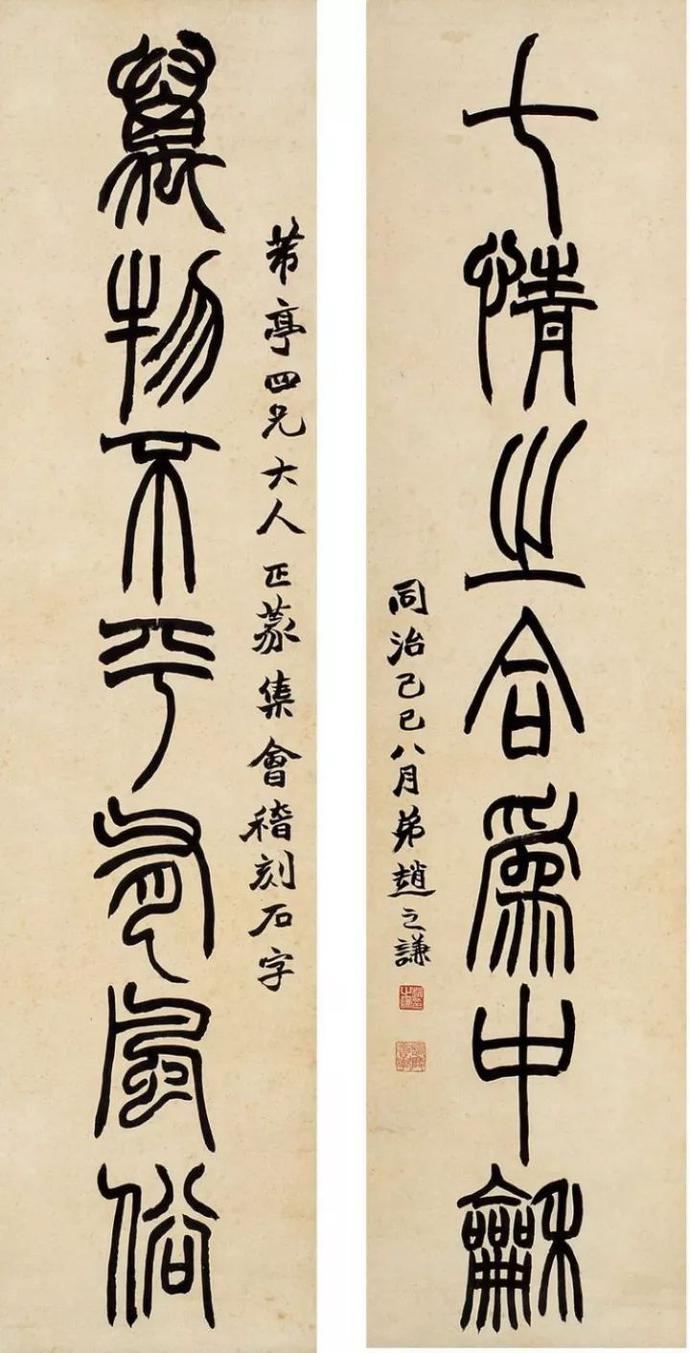 七情之合爲中龢
同治己巳八月弟趙之謙
芾亭四兄大人正篆集會稽刻石字
萬物不平有風俗